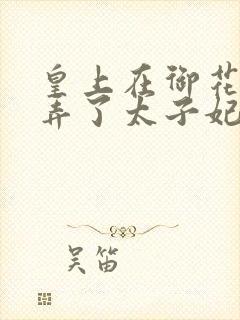 皇上在御花
弄了太子妃
吴笛